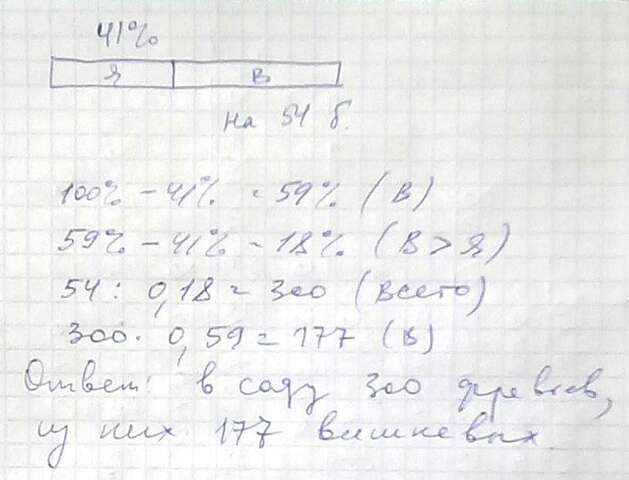 41%
Я В
на 54 б.
100% - 41% = 59% (В)
59% - 41% = 18% (В > Я)
54 : 0,18 = 300 (всего)
300 · 0,59 = 177 (В)
Ответ: в саду 300 деревьев,
из них 177 вишневых.